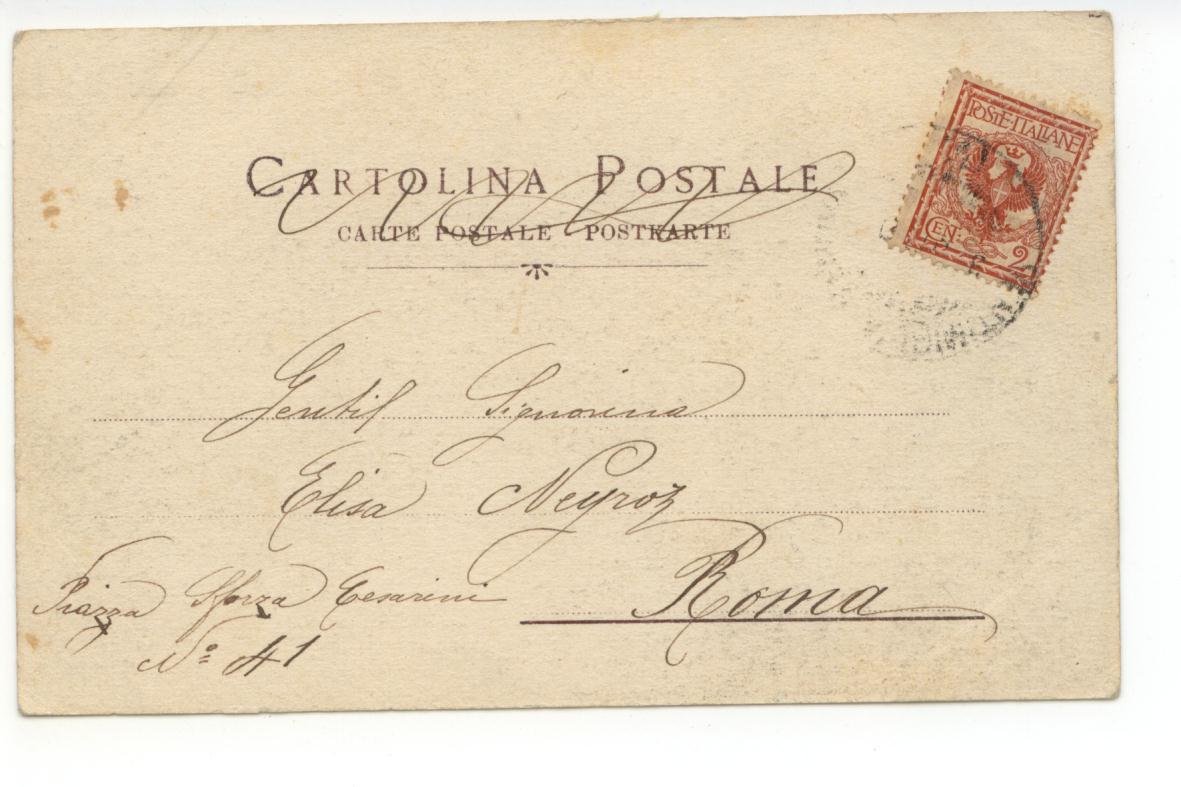 CARTOLINA POSTALE
CARTE POSTALE POSTKARTE
POSTE·ITALIANE
CEN: 2
Gentil Signorina
Elisa Neyroz
Roma
Piazza Sforza Cesarini
Nº 41